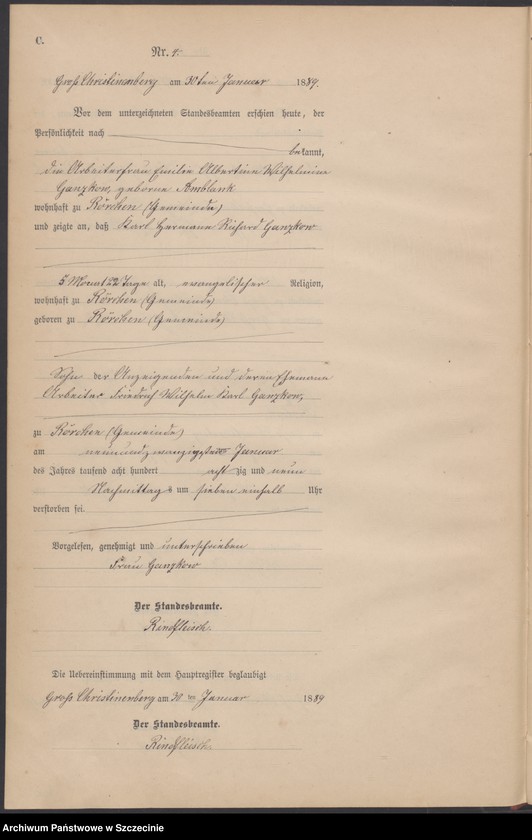 C.
Nr. 4.
Groß Christinenberg am 30ten Januar 1889.
Vor dem unterzeichneten Standesbeamten erschien heute, der
Persönlichkeit nach
bekannt,
die Arbeiterfrau Emilie Albertine Wilhelmine
Ganzkow, geborne Amblank
wohnhaft zu Rörchen (Gemeinde)
und zeigte an, daß Karl Hermann Richard Ganzkow
5 Monat 22 Tage alt, evangelischer Religion,
wohnhaft zu Rörchen (Gemeinde)
geboren zu Rörchen (Gemeinde)
Sohn der Anzeigenden und deren Ehemann
Arbeiter Friedrich Wilhelm Karl Ganzkow,
zu Rörchen (Gemeinde)
am neunundzwanzigsten Januar
des Jahres tausend acht hundert achtzig und neun
Nachmittags um sieben einhalb Uhr
verstorben sei.
Vorgelesen, genehmigt und unterschrieben
Frau Ganzkow
Der Standesbeamte.
Rindfleisch.
Die Uebereinstimmung mit dem Hauptregister beglaubigt
Groß Christinenberg am 30 ten Januar 1889
Der Standesbeamte.
Rindfleisch.
Archiwum Państwowe w Szczecinie